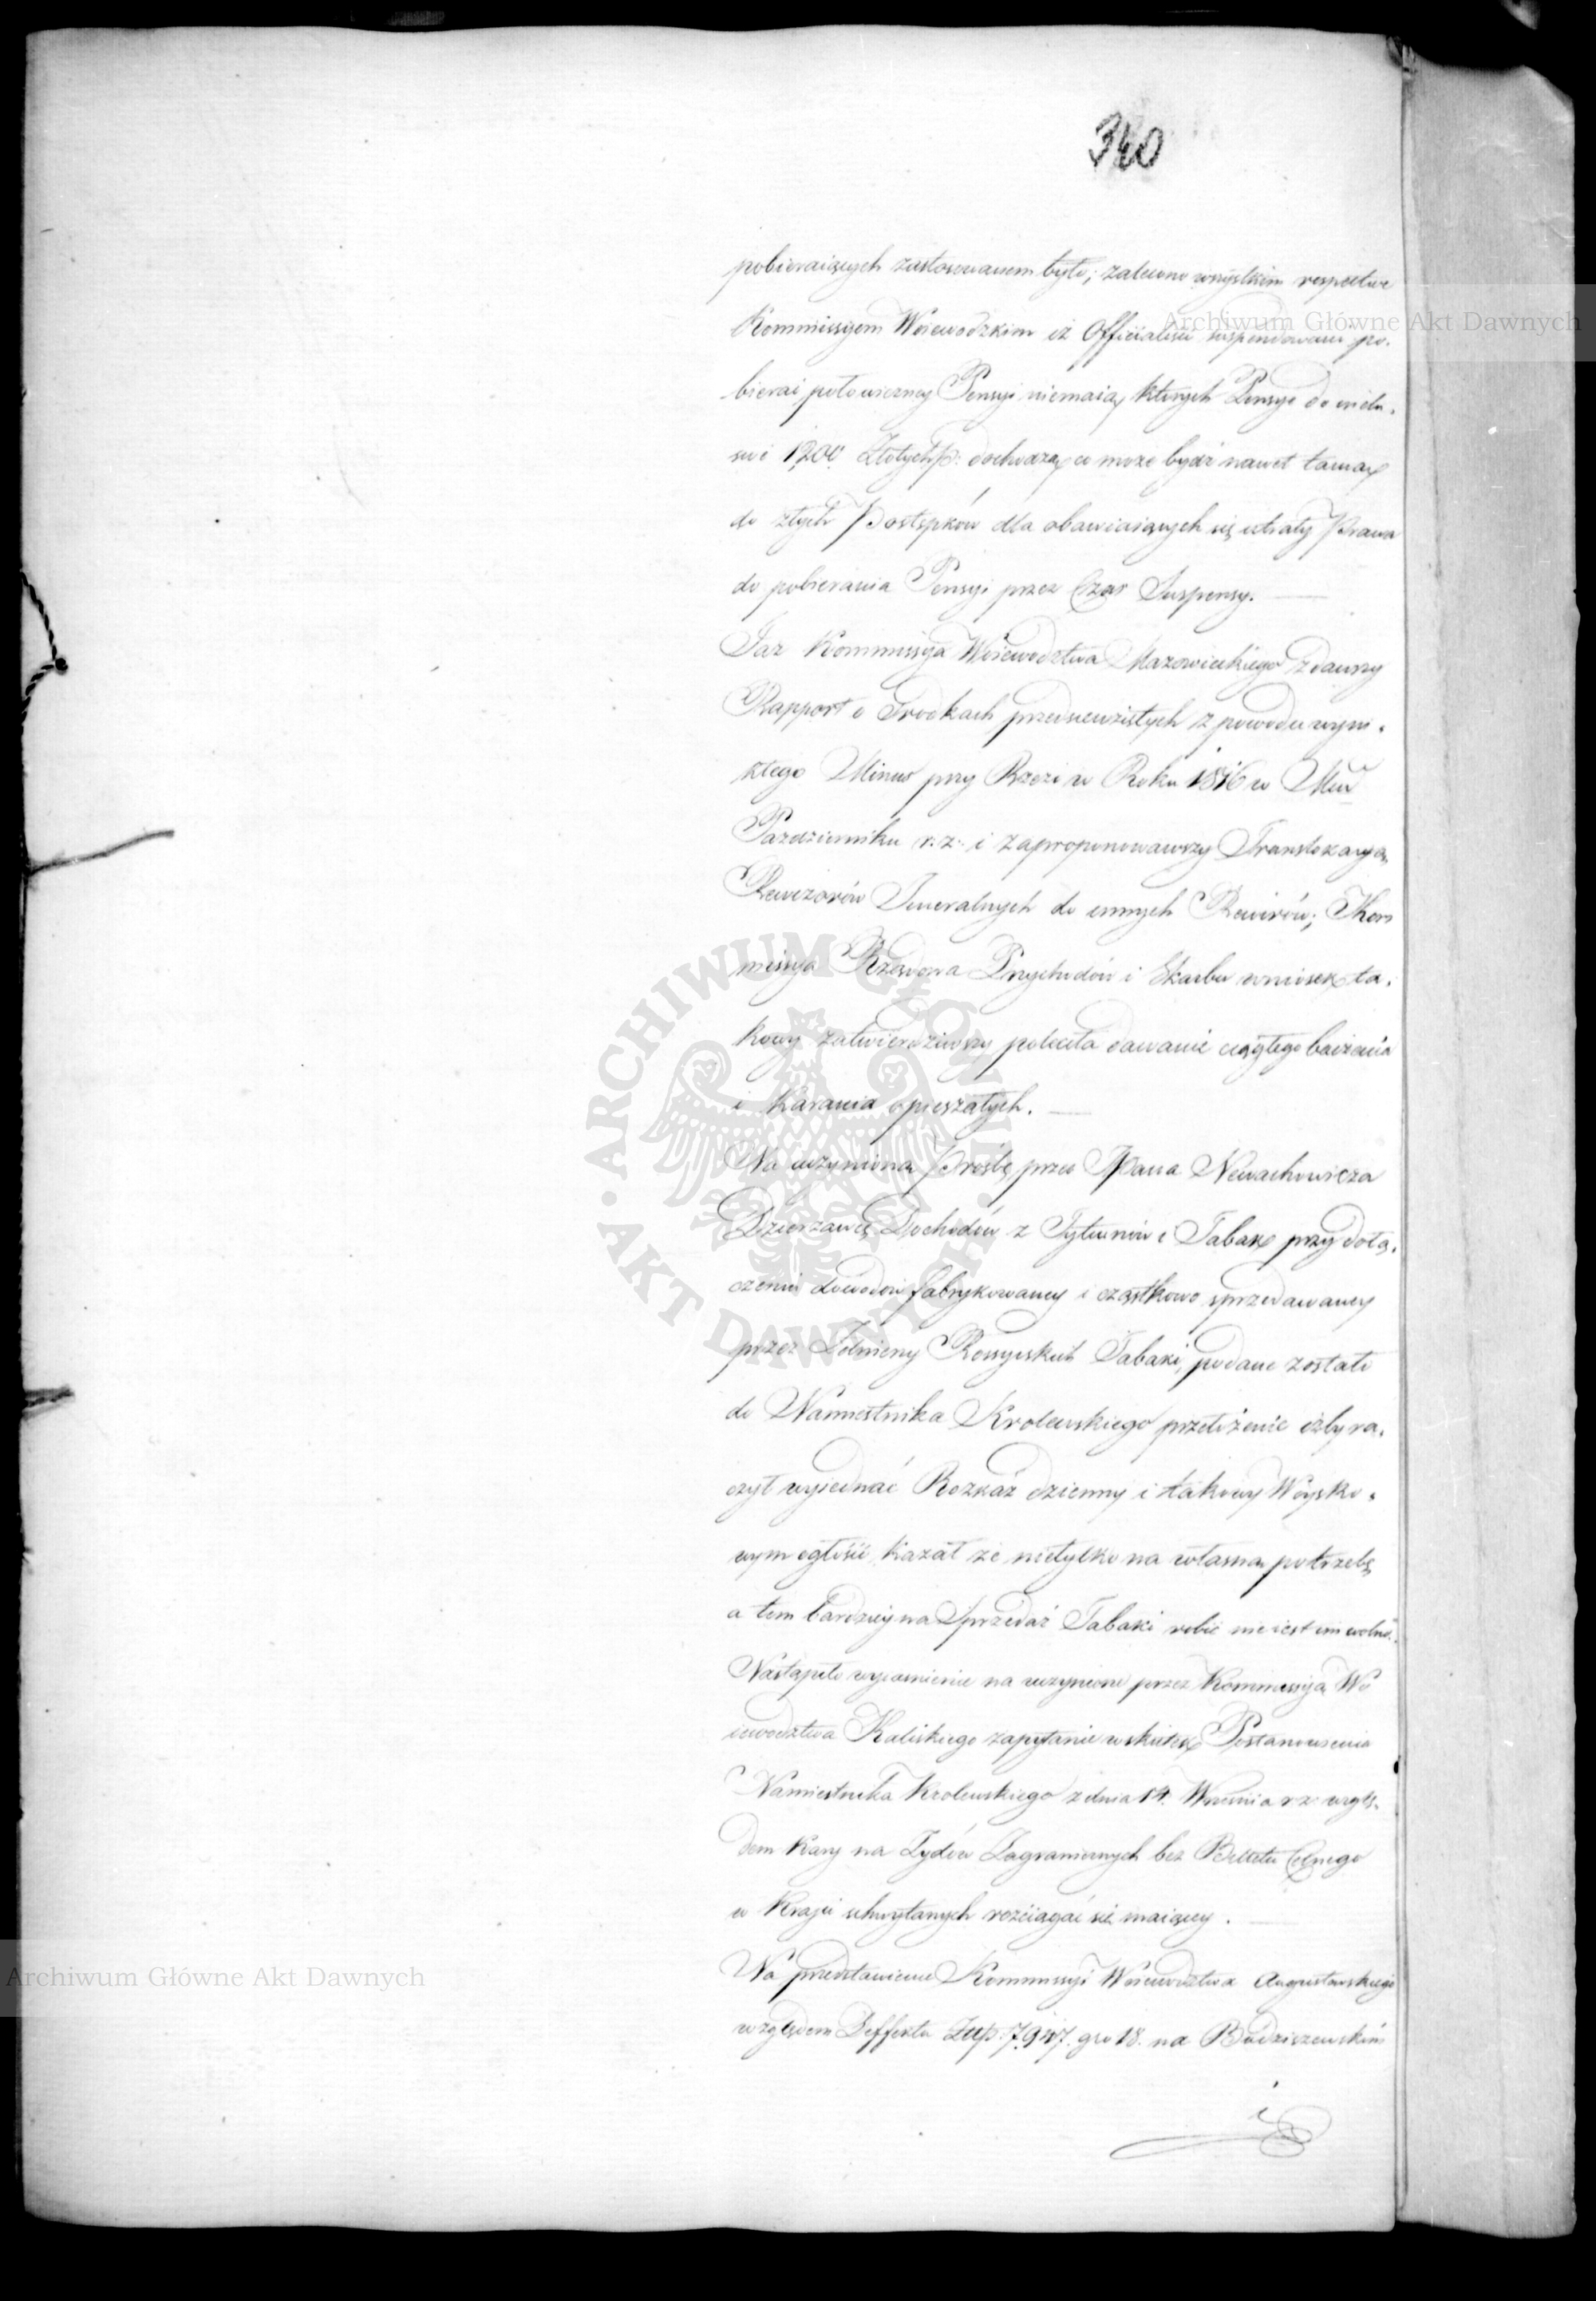 340
pobieraiących zastosowanem było; zalecono wszystkim respective
Kommissyom Woiewodzkim iż Officialisci suspendowani po-
bierai połowiczney Pensyi niemaią, których Pensye do wielu-
set 1200 Złotych p: dochodzą, co może bydź nawet tamą
do złych Postępków dla obawiaiących się utraty Prawa
do pobierania Pensyi przez Czas Suspensy.
Zaz Kommissya Woiewodztwa Mazowieckiego zdawszy
Rapport o Srodkach przedsiewziętych z powodu wyni-
kłego Minus przy Rzezi w Roku 1816 w Mcu
Pazdzierniku r: z: i zaproponowawszy Translokacyą
Rewizorów Jeneralnych do innych Rewirów; Kom
missya Rządowa Przychodów i Skarbu wniosek ta-
kowy zatwierdziwszy poleciła dawanie ciągłego baczenia
i Karania opieszałych.
Na uczynioną Prośbę przez JPana Newachowicza
Dzierzawcę Dochodów z Tytuniów i Tabak przy dołą-
czeniu dowodów fabrykowaney i cząstkowo sprzedawaney
przez Żołnierzy Rossyiskich Tabaki, podane zostało
do Namiestnika Krolewskiego przełożenie iżby ra-
czył wyiednać Rozkaz dzienny i takowy Woysko-
wym ogłosić kazał że nietylko na własną potrzebę
a tem bardziey na Sprzedaż Tabaki robić nie iest im wolno.
Nastąpiło wyiasnienie na uczynione przez Kommissyą Wo
iewodztwa Kaliskiego zapytanie w skutek Postanowienia
Namiestnika Krolewskiego z dnia 14. Wrzesnia r z: wzglę-
dem Kary na Żydów Zagranicznych bez Biletu Celnego
w Kraju schwytanych rozciągać się maiącey.
Na przedstawienie Kommissyi Woiewodztwa Augustowskiego
względem Deffektu Złłp: 7,947. gro 18. na Budziszewskim
i
Archiwum Główne Akt Dawnych
Archiwum Główne Akt Dawnych
ARCHIWUM GŁÓWNE · AKT DAWNYCH ·